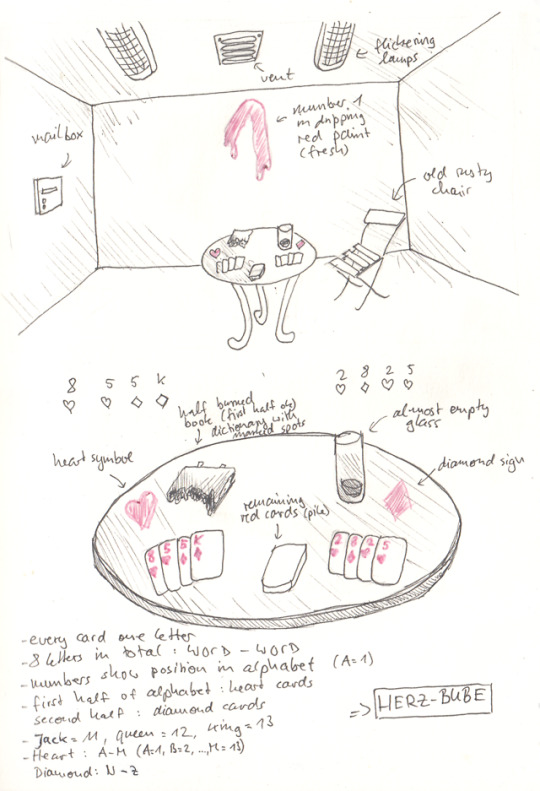 flickering
lamps
vent
number 1
in dripping
red paint
(fresh)
mailbox
old rusty
chair
8 5 5 K
♡ ♡ ◇ ◇
2 8 2 5
♡ ◇ ♡ ♡
half burned
book (first half of)
dictionary with
marked spots
al-most empty
glass
heart symbol
diamond sign
remaining
red cards (pile)
8 5 5 K
2 8 2 5
-every card one letter
-8 letters in total: WORD - WORD
-numbers show position in alphabet (A=1)
-first half of alphabet: heart cards
second half: diamond cards
-Jack=11, queen=12, king=13
-Heart: A-M (A=1, B=2, ..., M=13)
Diamond: N-Z
=> HERZ-BUBE